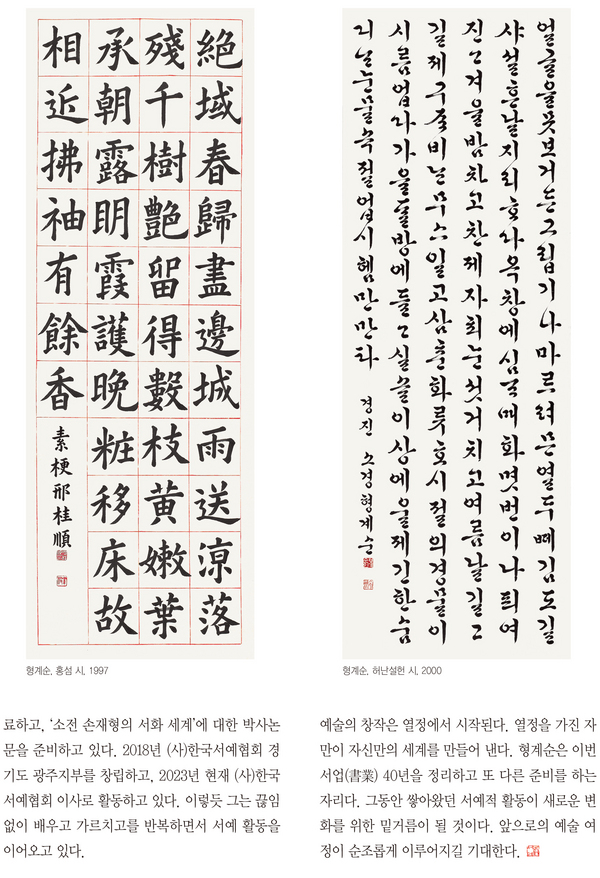 絶域春歸盡邊城雨送涼落
殘千樹艶留得數枝黃嫩葉
承朝露明霞護晩粧移床故
相近拂袖有餘香
素梗邢桂順
얼골을못보거든그립기나마르려믄열두빼김도길
샤설흔날지리호다옥창에심근매화몃번이나픠여
진고겨울밤차고찬제자최눈섯거치고여름날길고
길제구즌비난무스일고삼춘화류호시절의경물이
시름업다가을달방에들고실솔이상에울제긴한숨
디난눈물속절업시혬만만타
경진 소경형계순
형계순, 홍섬 시, 1997
형계순, 허난설헌 시, 2000
료하고, ‘소전 손재형의 서화 세계’에 대한 박사논
문을 준비하고 있다. 2018년 (사)한국서예협회 경
기도 광주지부를 창립하고, 2023년 현재 (사)한국
서예협회 이사로 활동하고 있다. 이렇듯 그는 끊임
없이 배우고 가르치고를 반복하면서 서예 활동을
이어오고 있다.
예술의 창작은 열정에서 시작된다. 열정을 가진 자
만이 자신만의 세계를 만들어 낸다. 형계순은 이번
서업(書業) 40년을 정리하고 또 다른 준비를 하는
자리다. 그동안 쌓아왔던 서예적 활동이 새로운 변
화를 위한 밑거름이 될 것이다. 앞으로의 예술 여
정이 순조롭게 이루어지길 기대한다.